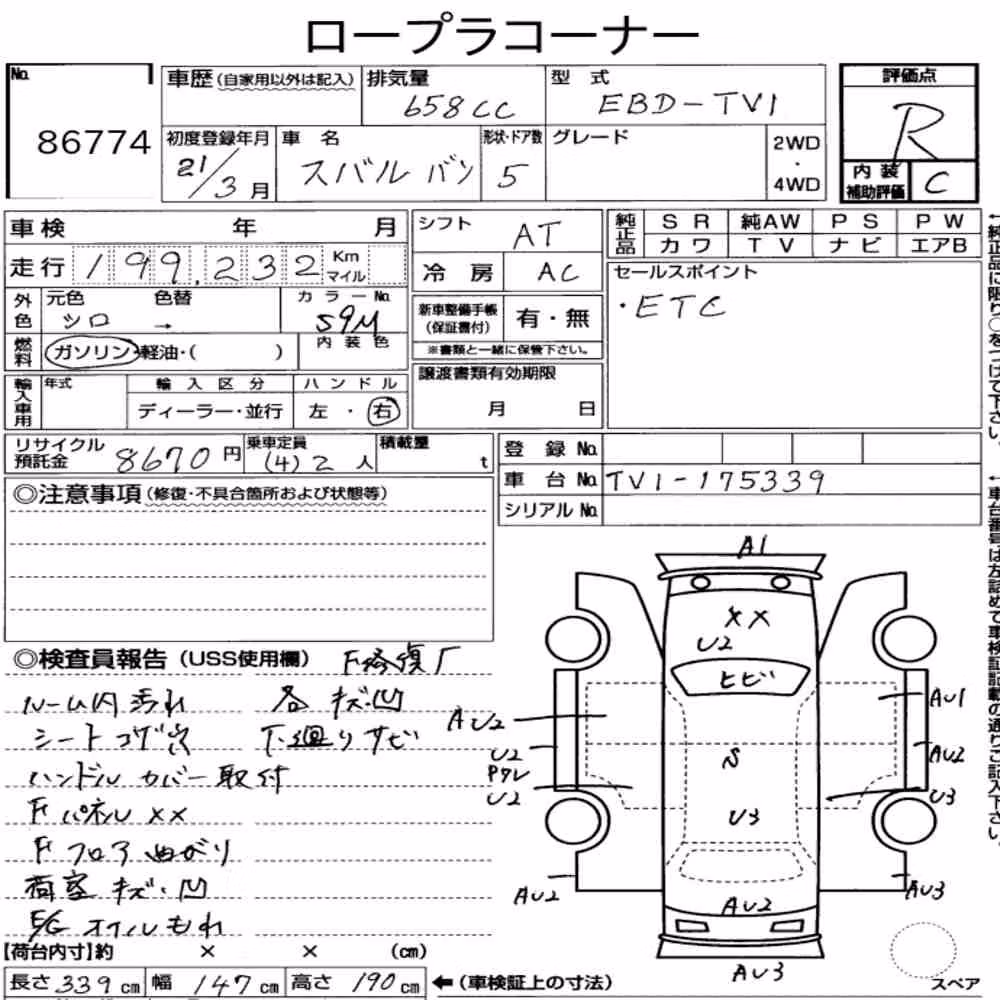 ロープラコーナー
No. 86774
車歴(自家用以外は記入)
排気量 658cc
型式 EBD-TV1
評価点 R
初度登録年月 21/3月
車名 スバル バン
形状・ドア数 5
グレード
2WD・4WD
内装補助評価 C
車検 年 月
シフト AT
純正品 SR 純AW PS PW
カワ TV ナビ エアB
走行 199,232 Km マイル
冷房 AC
セールスポイント
・ETC
外色 元色 シロ 色替 → カラーNo. 59M
内装色
新車整備手帳(保証書付) 有・無
※書類と一緒に保管下さい。
燃料 ガソリン・軽油・( )
譲渡書類有効期限
月 日
輸入車用 年式 輸入区分 ハンドル
ディーラー・並行 左・右
リサイクル預託金 8670円
乗車定員 (4)2人
積載量 t
登録No.
車台No. TV1-175339
シリアルNo.
◎注意事項(修復・不具合箇所および状態等)
◎検査員報告(USS使用欄) F修復厂
ルーム内汚れ 各キズ・凹
シートコゲ穴 下廻りサビ
ハンドルカバー取付
FパネルXX
Fフロア曲がり
荷室キズ・凹
E/Gオイルもれ
A1
XX
U2
ヒビ
AU2
AU1
U2
AU2
S
Pタレ
U2
U3
U3
AU2
AU3
AU2
AU3
スペア
【荷台内寸】約 × × (cm)
長さ339cm 幅147cm 高さ190cm ←(車検証上の寸法)
←純正品に限り○をつけて下さい。
←車台番号は左詰めで車検証記載の通りご記入下さい。